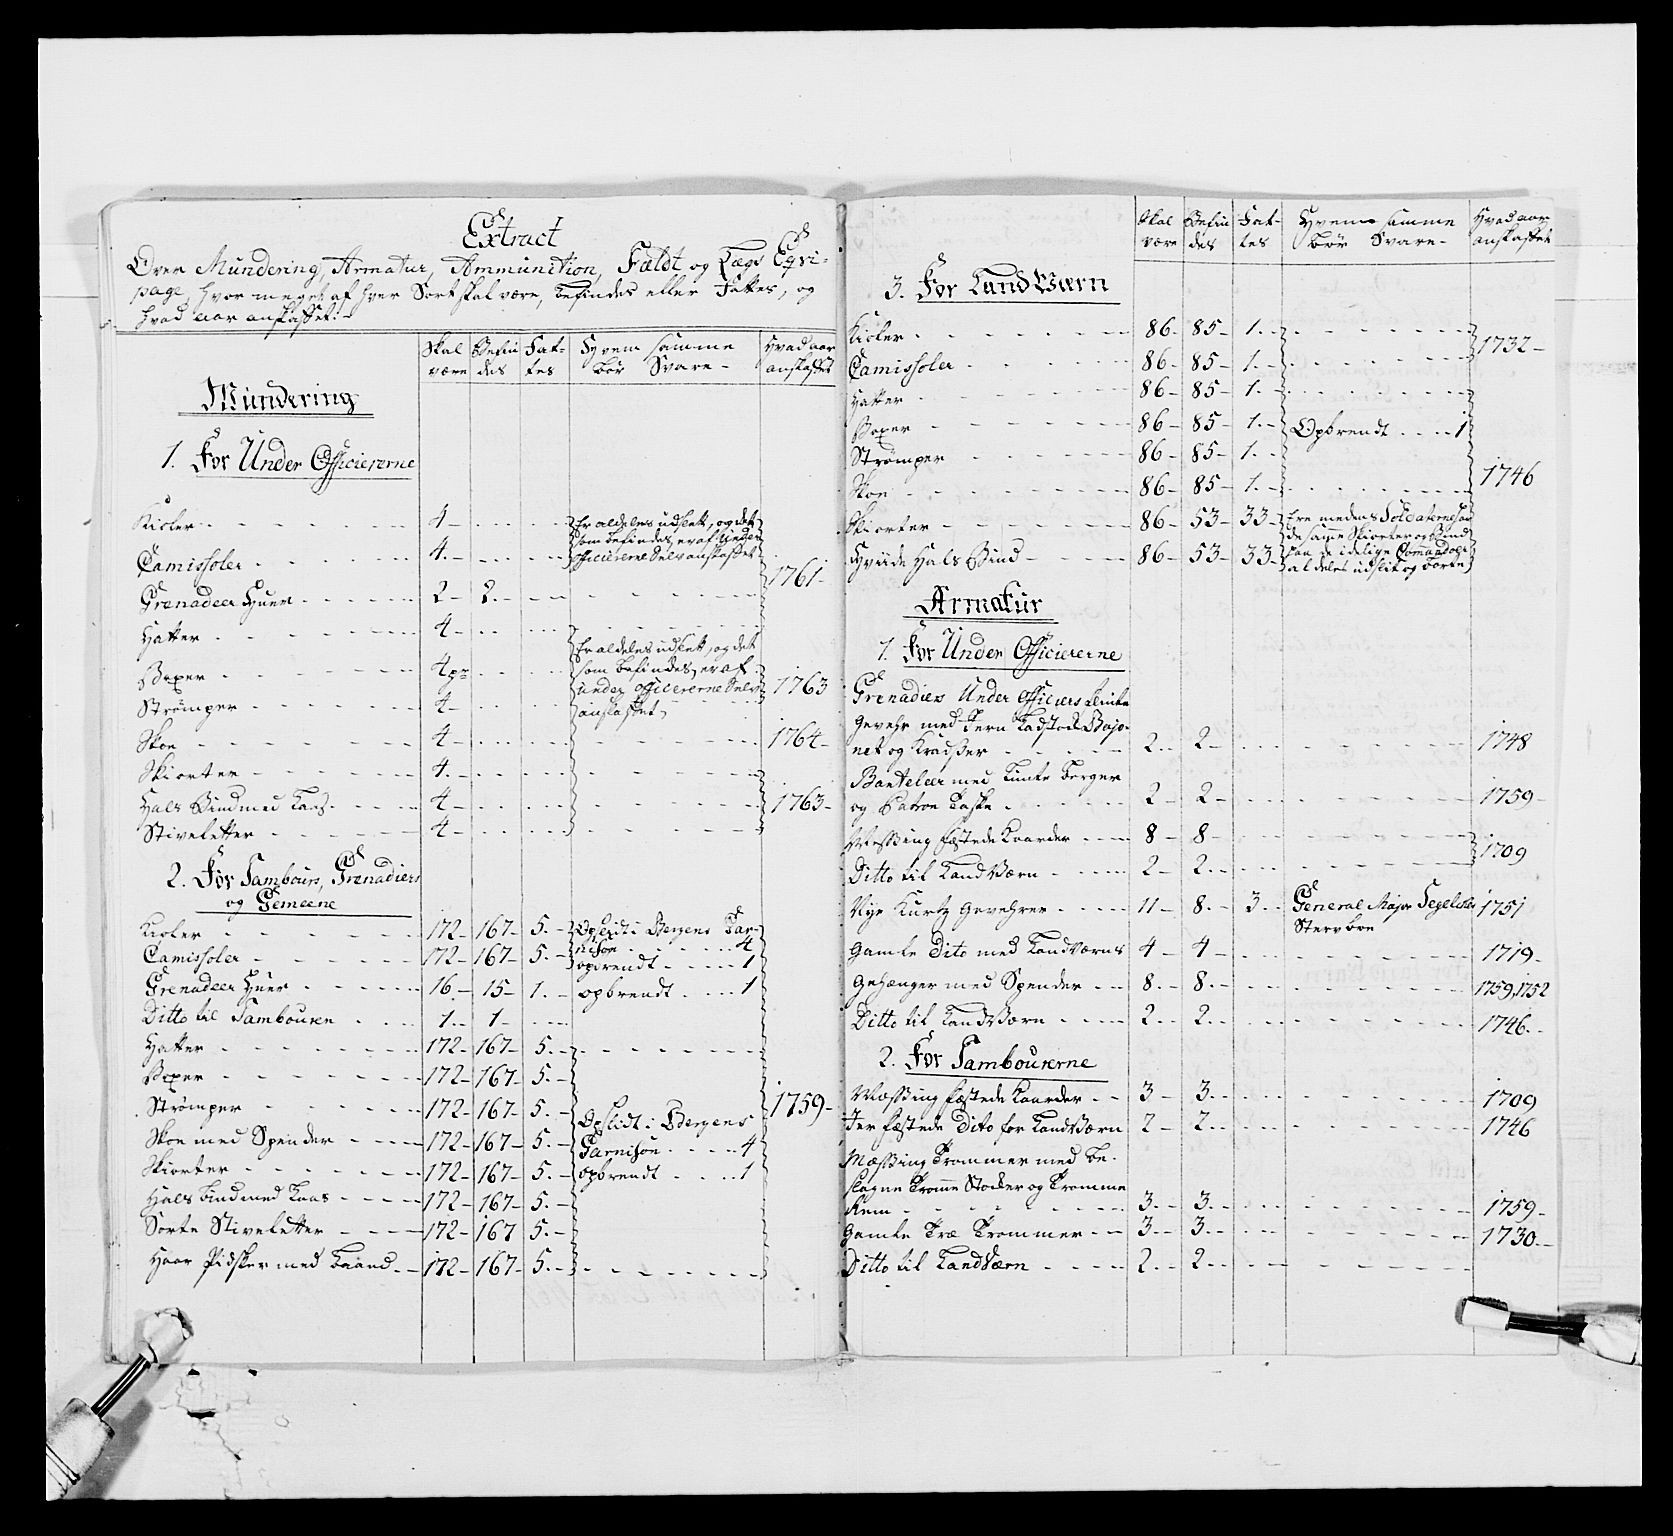 Extract
Over Mundering, Armatur, Ammunition, Feldt og Læger Eqvi-
page, hvor meget af hver Sort skal være, befindes eller Fattes, og
hvad aar anskaffet.
Skal være | Befindes | Fattes | Hvem samme bør Svare | Hvad aar anskaffet
Mundering
1. For Under Officiererne
Kioler - 4 - Er aldeles udslett, og det
som befindes, er af Under
Camissoler - 4 - Officiererne Selv anskaffet
1761
Grenadeer Huer - 2 - 2
Hatter - 4
Er aldeles udslett, og det
Boxer - 4 pr - som befindes, er af
under officiererne Selv 1763
Strømper - 4 - anskaffet
Skoe - 4 - 1764
Skiorter - 4
Hals Bind med Laas - 4 - 1763
Stiveletter - 4
2. For Tambours, Grenadiers
og Gemeene
Kioler - 172 - 167 - 5 - Opslidt i Bergens Gar-
nison 4
Camissoler - 172 - 167 - 5 - opbrendt 1
Grenadeer Huer - 16 - 15 - 1 - opbrendt 1
Ditto til Tambouren - 1 - 1
Hatter - 172 - 167 - 5
Boxer - 172 - 167 - 5
Strømper - 172 - 167 - 5 - 1759
Opslidt i Bergens
Skoe med Spender - 172 - 167 - 5 - Garnison 4
Skiorter - 172 - 167 - 5 - opbrendt 1
Hals bind med Laas - 172 - 167 - 5
Sorte Stiveletter - 172 - 167 5
Haar Pidsker med Baand - 172 - 167 - 5
Skal være | Befindes | Fattes | Hvem samme bør Svare | Hvad aar anskaffet
3. For Land Værn
Kioler - 86 - 85 - 1
1732
Camissoler - 86 - 85 - 1
Hatter - 86 - 85 - 1
Boxer - 86 - 85 - 1 - Opbrendt 1
Strømper - 86 - 85 - 1
1746
Skoe - 86 - 85 - 1
Skiorter - 86 - 53 - 33 - Ere medens Soldaterne har
de samme Skiorter og Bind
Hviide Hals Bind - 86 - 53 - 33 - paa de idelige Commandoer
aldeles udslit og borte
Armatur
1. For Under Officiererne
Grenadiers Under Officiers
Gevehr med Jern Ladstok Bajo-
net og Kradser - 2 - 2 - 1748
Banteleer med Lunte berger
og Patron Taske - 2 - 2 - 1759
Messing fæstede Kaarder - 8 - 8
1709
Ditto til Land Værn - 2 - 2
Nye Kurtz Gevehrer - 11 - 8 - 3 - General Major 1751
Sterv boe
Gamle Dito med Landværns 4 - 4 - 1719
Gehænger med Spender - 8 - 8 - 1759, 1752
Ditto til Land Værn - 2 - 2 - 1746
2. For Tambourerne
Messing fæstede Kaarder - 3 - 3 - 1709
Jer fæstede Dito for Land Værn 2 - 2 - 1746
Messing Trommer med be-
slagne Tromme Stocker og Tromme
Rem - 3 - 3 - 1759
Gamle Træ Trommer - 3 - 3 - 1730
Ditto til Land Værn - 2 - 2